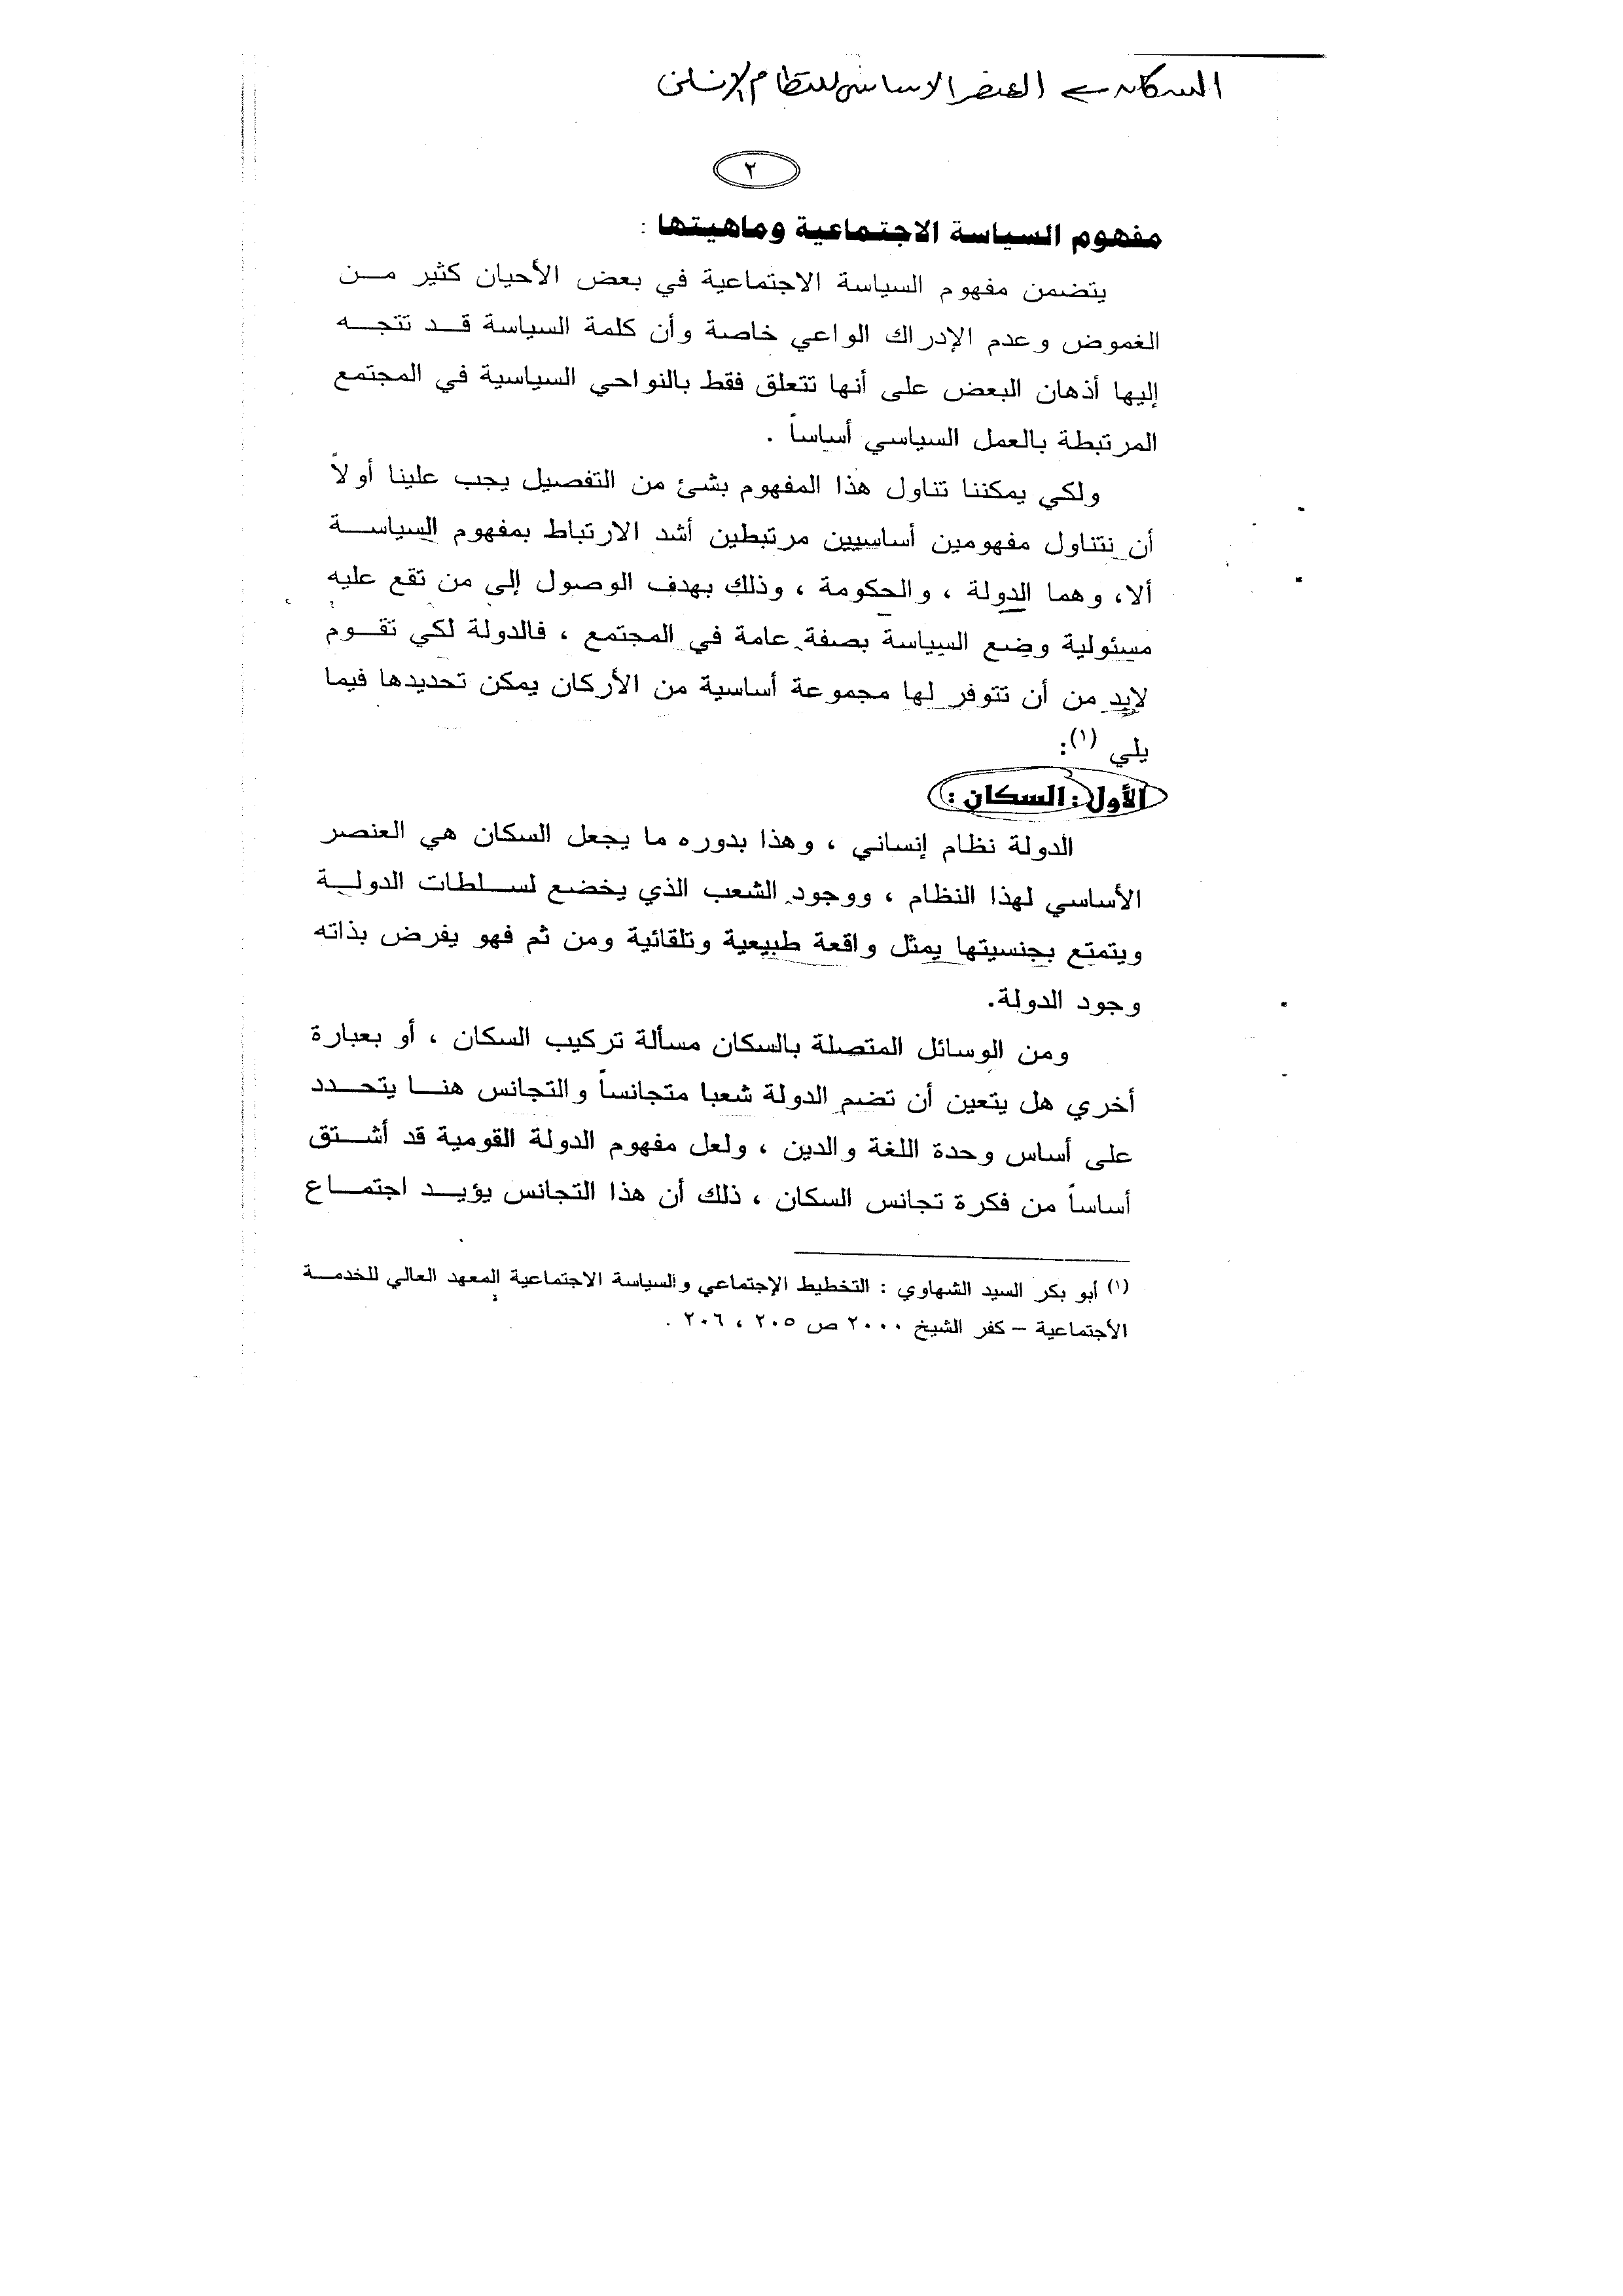 السكان هي العنصر الاساسى للنظام الإنسانى
٢
مفهوم السياسة الاجتماعية وماهيتها :
يتضمن مفهوم السياسة الاجتماعية في بعض الأحيان كثير من
الغموض وعدم الإدراك الواعي خاصة وأن كلمة السياسة قد تتجه
إليها أذهان البعض على أنها تتعلق فقط بالنواحي السياسية في المجتمع
المرتبطة بالعمل السياسي أساساً .
ولكي يمكننا تناول هذا المفهوم بشئ من التفصيل يجب علينا أولاً
أن نتناول مفهومين أساسيين مرتبطين أشد الارتباط بمفهوم السياسة
ألا، وهما الدولة ، والحكومة ، وذلك بهدف الوصول إلى من تقع عليه
مسئولية وضع السياسة بصفة عامة في المجتمع ، فالدولة لكي تقوم
لابد من أن تتوفر لها مجموعة أساسية من الأركان يمكن تحديدها فيما
يلي (١):
الأول : السكان :
الدولة نظام إنساني ، وهذا بدوره ما يجعل السكان هي العنصر
الأساسي لهذا النظام ، ووجود الشعب الذي يخضع لسلطات الدولة
ويتمتع بجنسيتها يمثل واقعة طبيعية وتلقائية ومن ثم فهو يفرض بذاته
وجود الدولة.
ومن الوسائل المتصلة بالسكان مسألة تركيب السكان ، أو بعبارة
أخري هل يتعين أن تضم الدولة شعبا متجانساً والتجانس هنا يتحدد
على أساس وحدة اللغة والدين ، ولعل مفهوم الدولة القومية قد أشتق
أساساً من فكرة تجانس السكان ، ذلك أن هذا التجانس يؤيد اجتماع
(١) أبو بكر السيد الشهاوي : التخطيط الإجتماعي والسياسة الاجتماعية المعهد العالي للخدمة
الأجتماعية – كفر الشيخ ٢٠٠٠ ص ٢٠٥ ، ٢٠٦ .